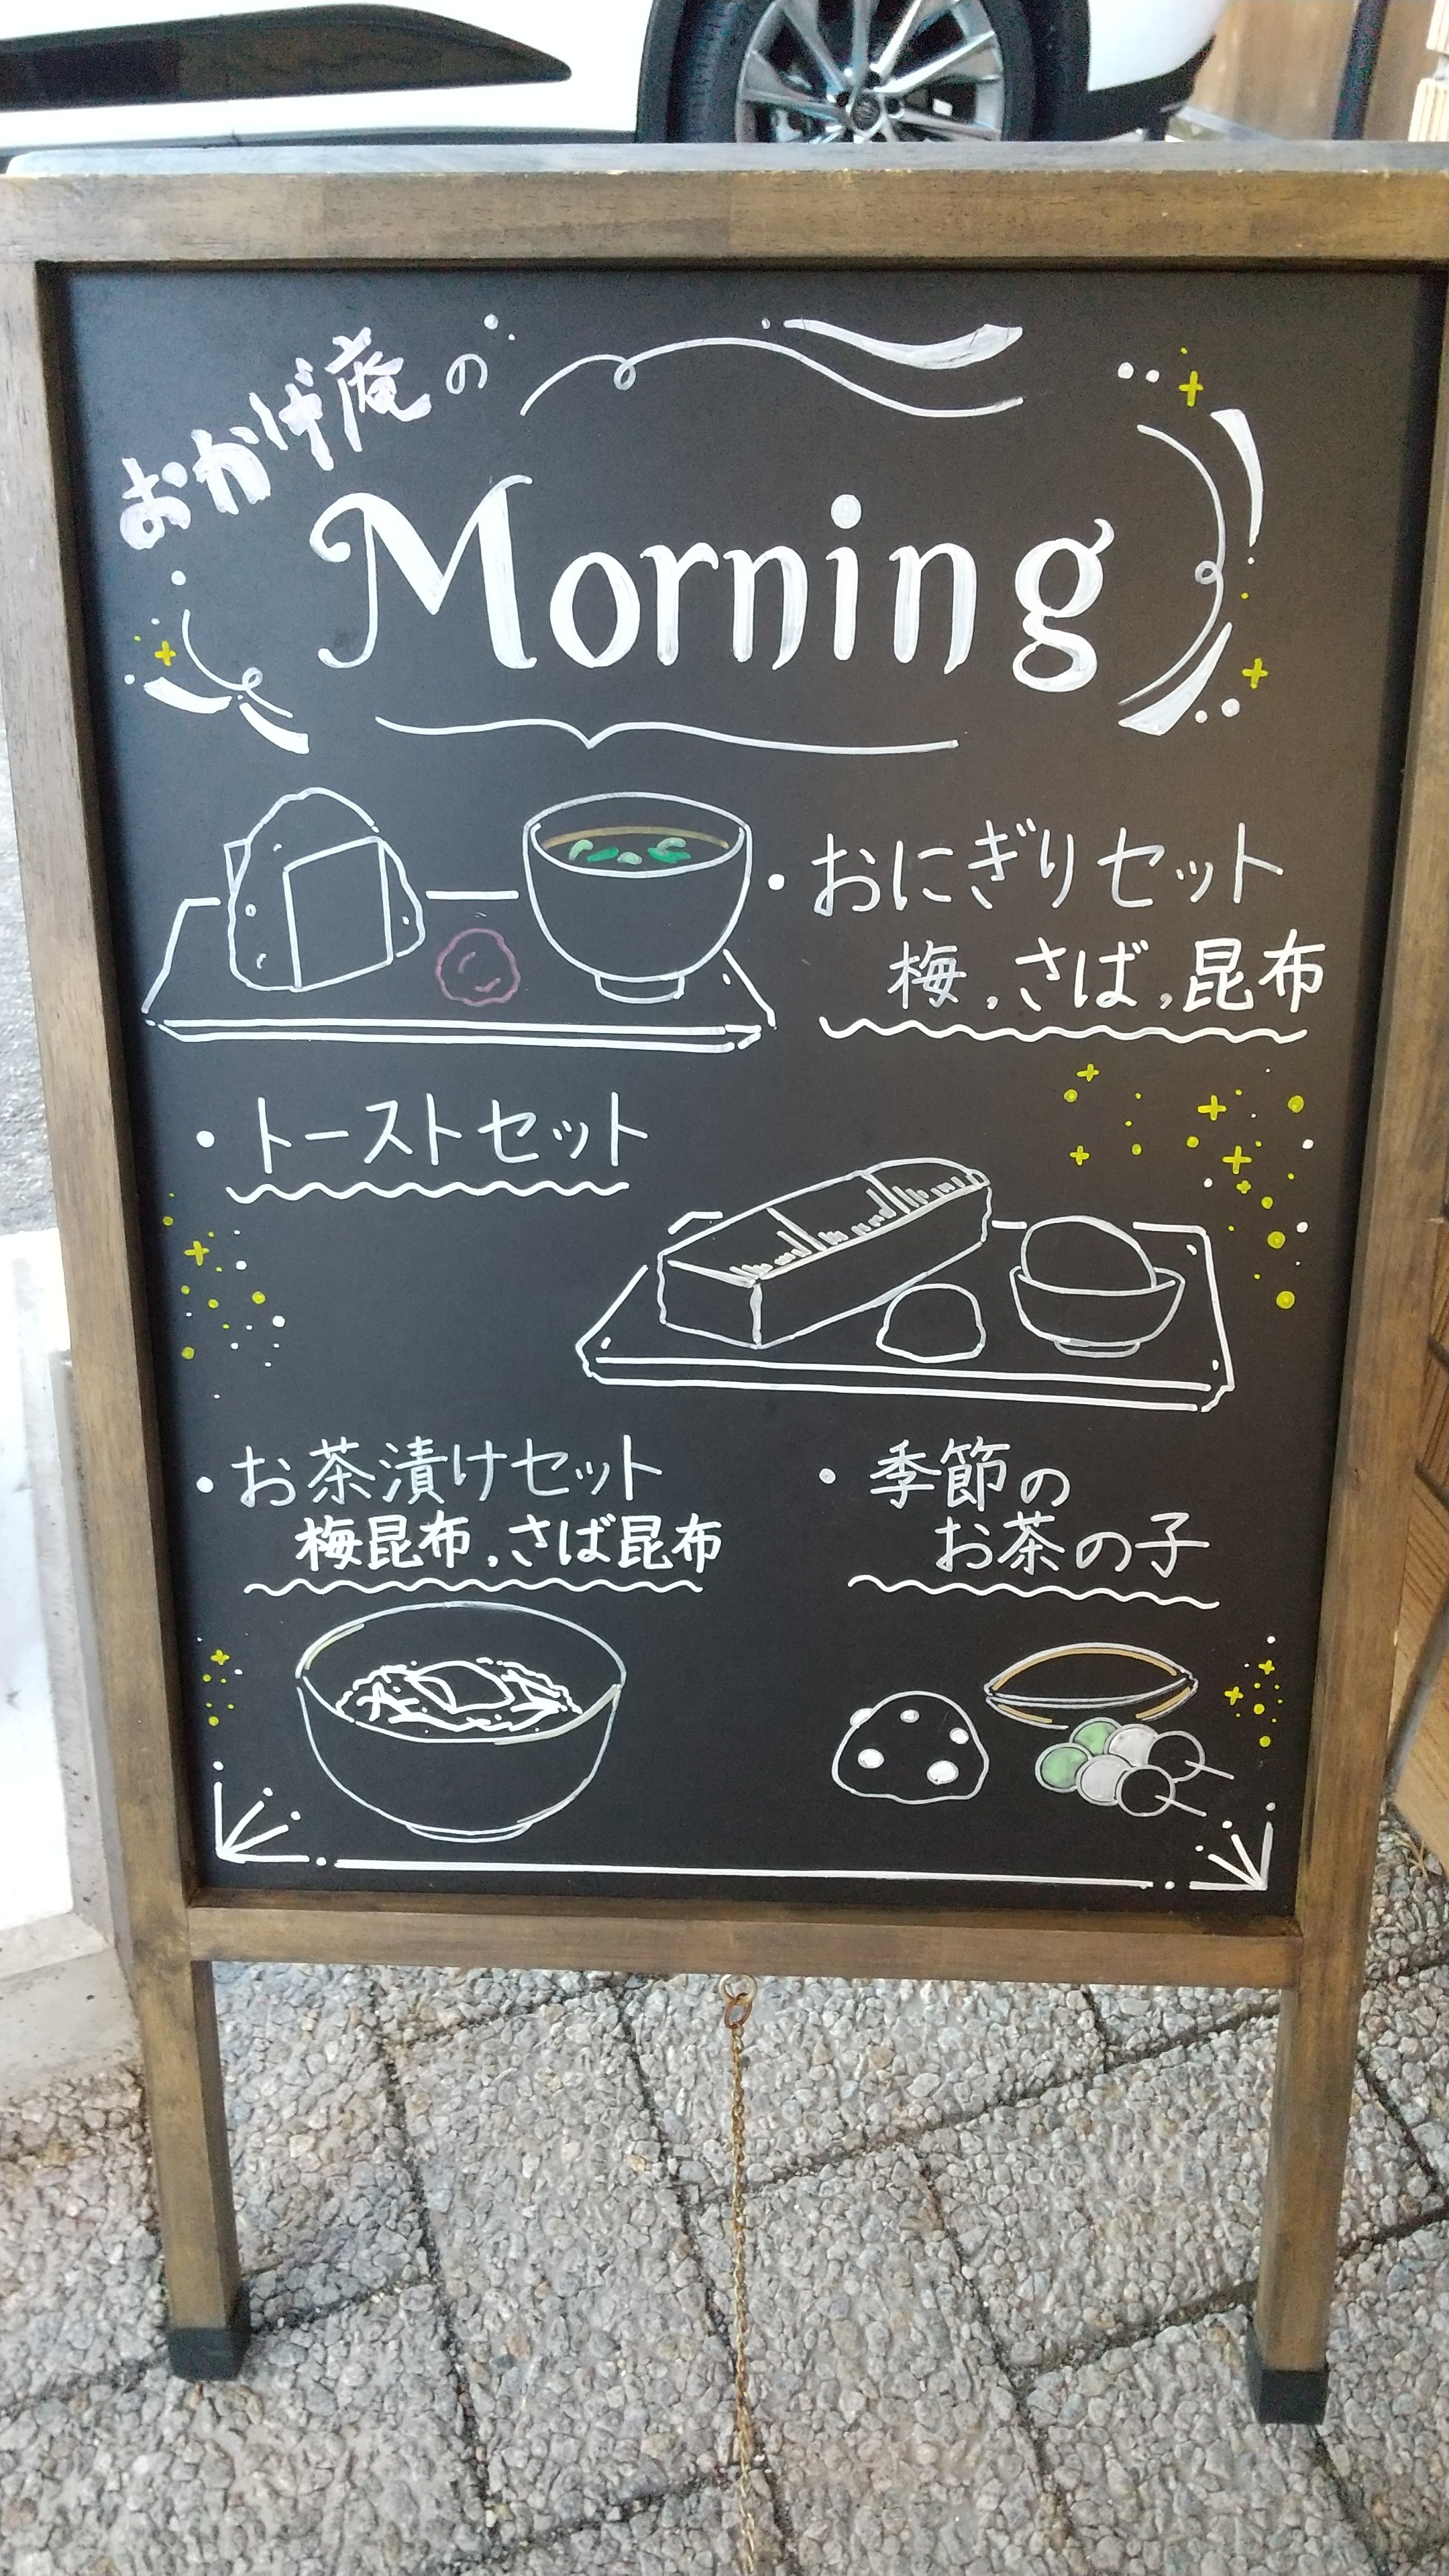 おかげ庵の
Morning
・おにぎりセット
梅,さば,昆布
・トーストセット
・お茶漬けセット
梅昆布,さば昆布
・季節の
お茶の子